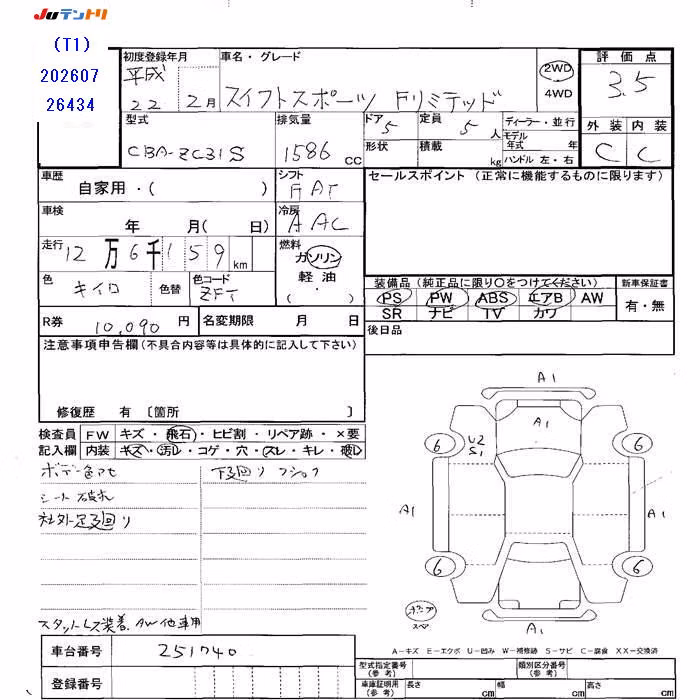 JUテントリ
(T1)
202607
26434
初度登録年月
平成
22 2月
車名・グレード
スイフトスポーツ Fリミテッド
2WD
4WD
評価点
3.5
型式
CBA-ZC31S
排気量
1586 cc
ドア 5
定員 5 人
ディーラー・並行
モデル年式 年
形状
積載 kg
ハンドル 左・右
外装 内装
C C
車歴
自家用・( )
シフト
FAT
セールスポイント(正常に機能するものに限ります)
車検
年 月( 日)
冷房
AAC
走行
12万6千159km
燃料
ガソリン
軽油
( ・ )
色
キイロ
色替
色コード
ZFT
装備品(純正品に限り○をつけてください)
新車保証書
PS PW ABS エアB AW
有・無
SR ナビ TV カワ
R券 10,090 円
名変期限 月 日
後日品
注意事項申告欄(不具合内容等は具体的に記入して下さい)
修復歴 有 〔箇所 〕
検査員
記入欄
FW キズ・飛石・ヒビ割・リペア跡・×要
内装 キズ・汚レ・コゲ・穴・スレ・キレ・破レ
下廻り
シート破れ
社外足廻り
スタットレス装着、AW他車用
A1
A1
U2
S1
6
6
A1
A1
6
6
A1
スペア
A-キズ E-エクボ U-凹み W-補修跡 S-サビ C-腐食 XX-交換済
車台番号 251740
登録番号
型式指定番号(参考)
類別区分番号(参考)
車庫証明用(参考) 長さ cm 幅 cm 高さ cm